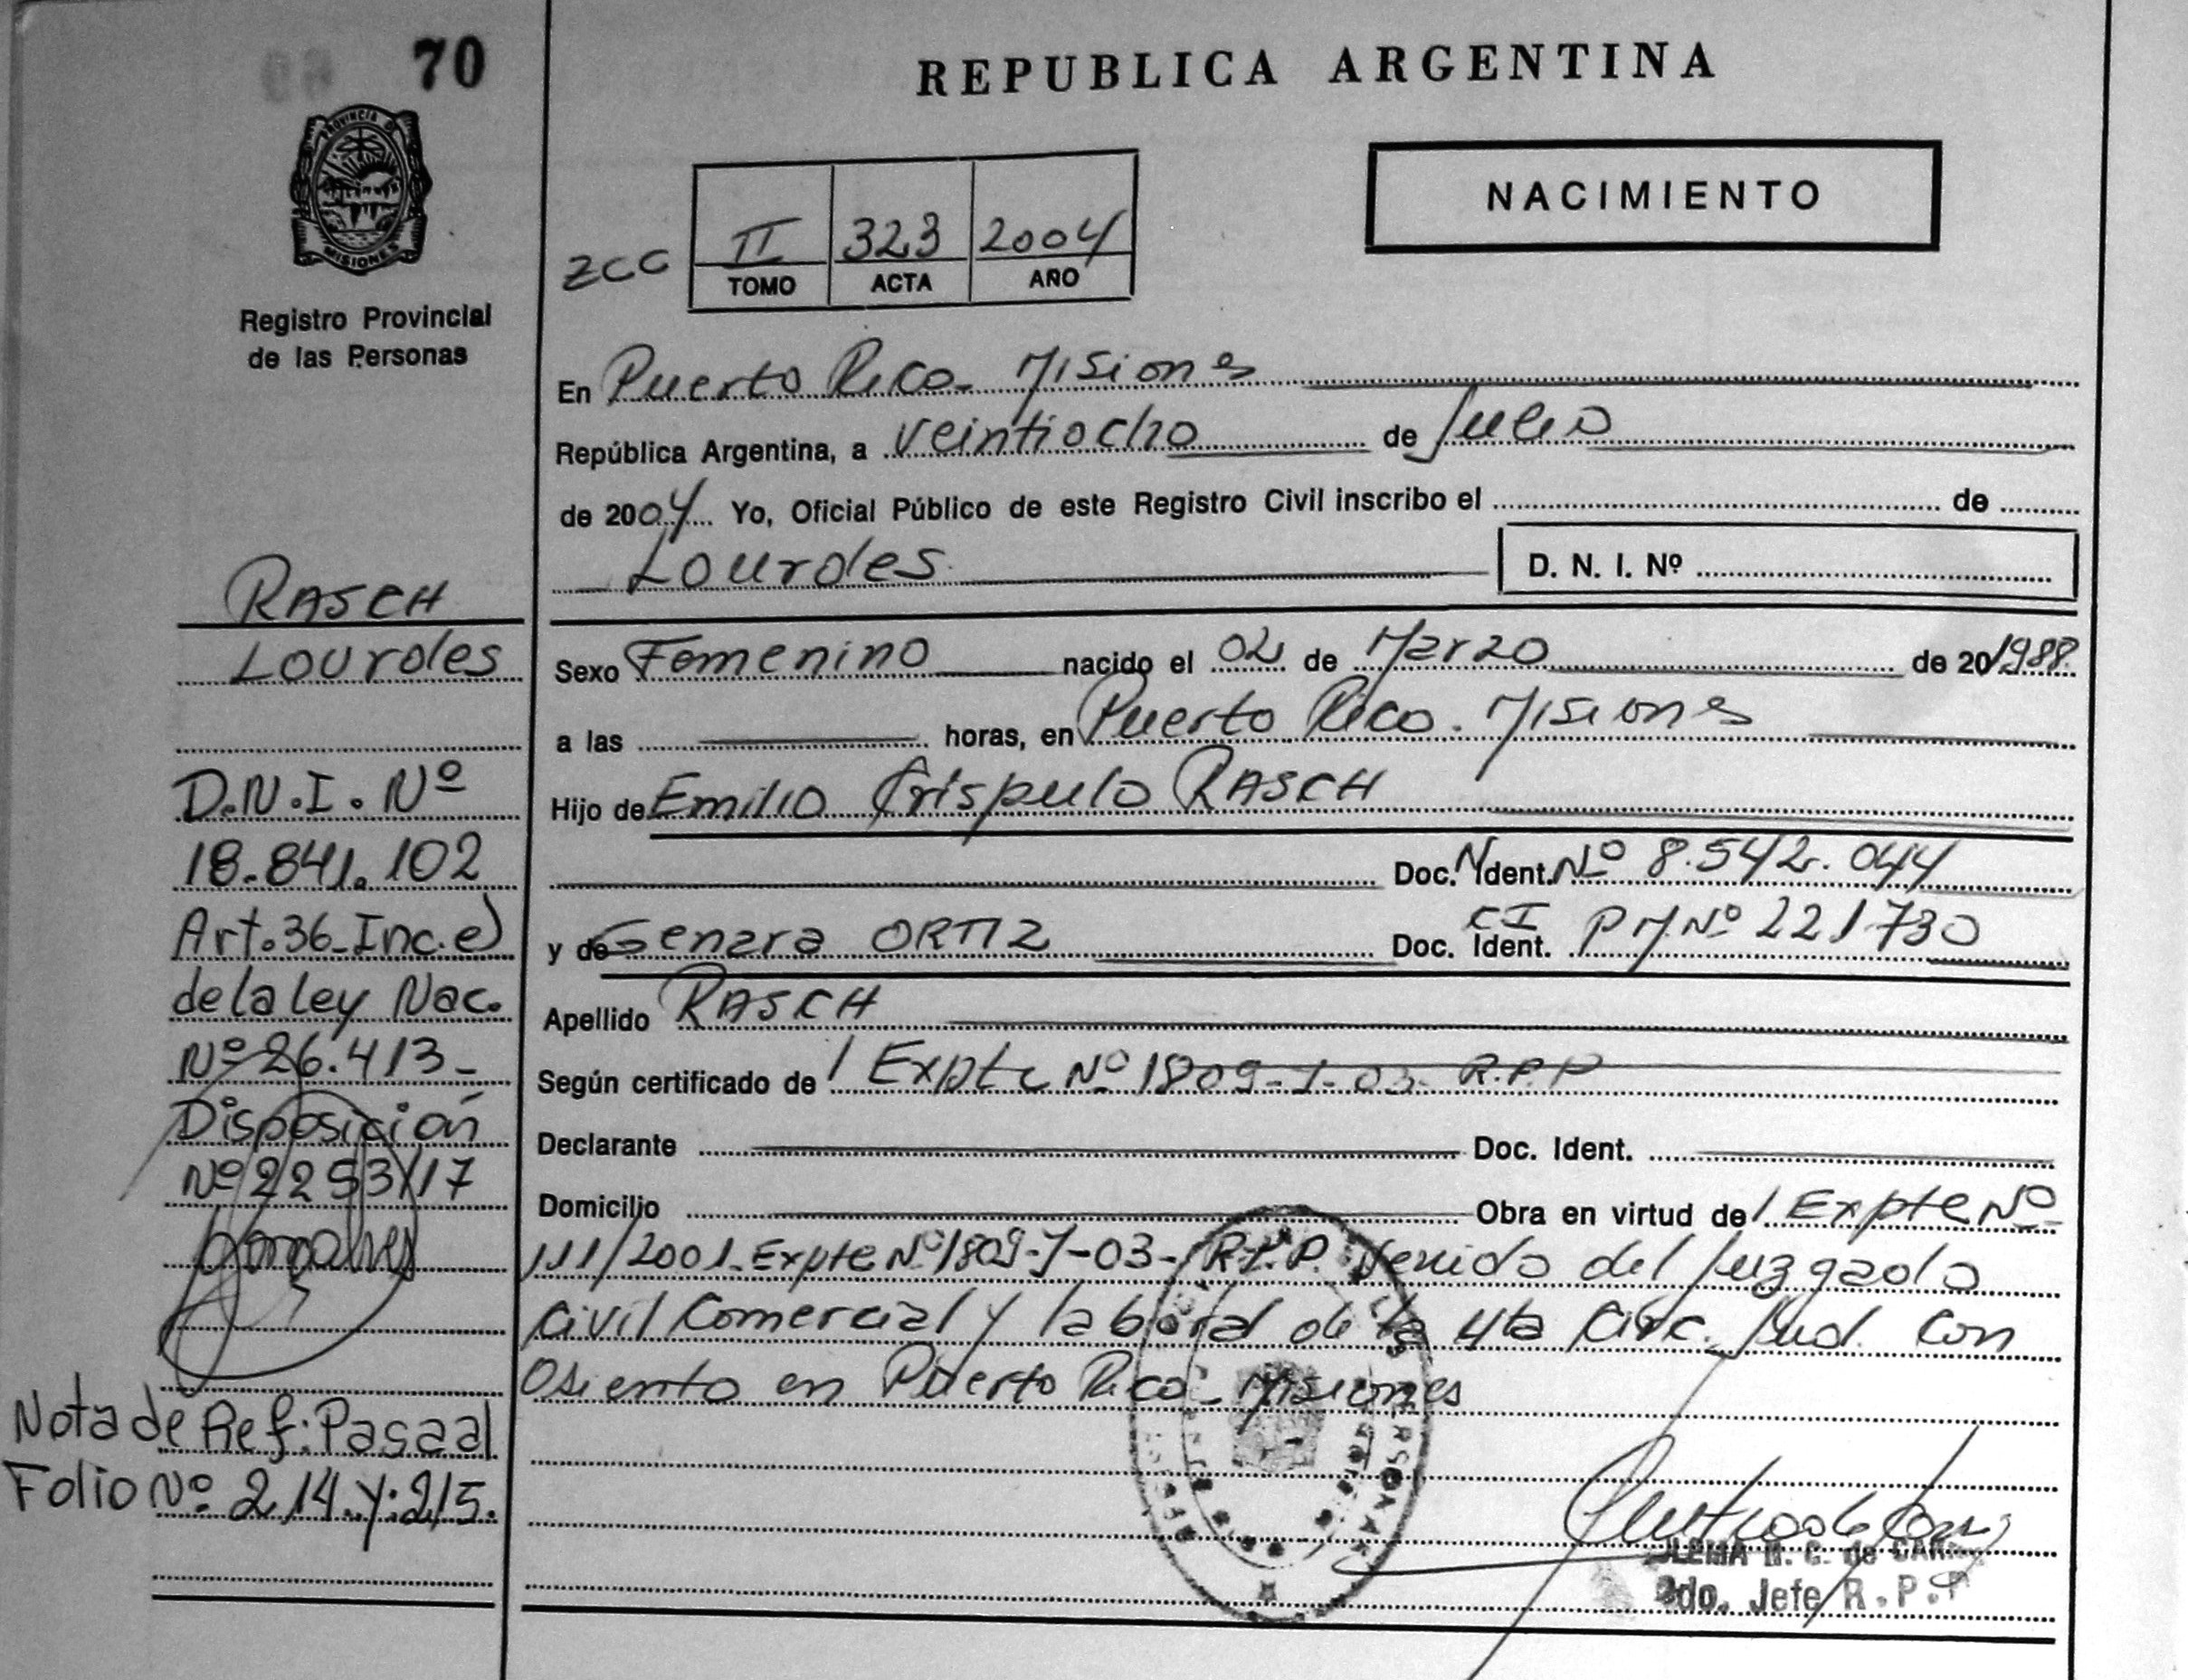 70
REPUBLICA ARGENTINA
PROVINCIA DE
MISIONES
Registro Provincial
de las Personas
NACIMIENTO
ZCC II 323 2004
TOMO ACTA AÑO
En Puerto Rico - Misiones
República Argentina, a veintiocho de Julio
de 2004 Yo, Oficial Público de este Registro Civil inscribo el de
Lourdes D. N. I. Nº
Sexo Femenino nacido el 02 de Marzo de 20 1988.
a las horas, en Puerto Rico. Misiones
Hijo de Emilio Críspulo RASCH
Doc. Ident. Nº 8.542.044
y de Genara ORTIZ Doc. Ident. CI P M Nº 221730
Apellido RASCH
Según certificado de / Expte Nº 1809- -03- R.P.P
Declarante Doc. Ident.
Domicilio Obra en virtud de / Expte Nº
111/2001-Expte Nº 1809-J-03- R.P.P. venido del Juzgado
Civil Comercial y laboral de la 4ta Circ. Jud. Con
Asiento en Puerto Rico - Misiones
2do. Jefe R.P.P
RASCH
Lourdes
D.N.I. Nº
18.841.102
Art.36-Inc.e)
de la ley Nac.
Nº 26.413-
Disposición
Nº 2253/17
Nota de Ref: Pasa al
Folio Nº 214.y:215.